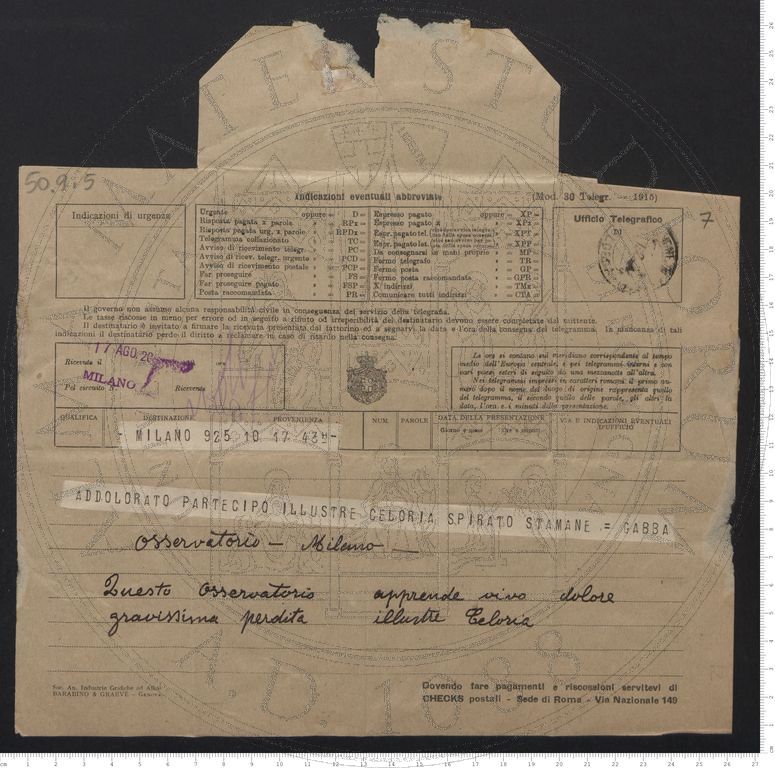 50.9.5
Indicazioni eventuali abbreviate
(Mod. 30 Telegr. 1915)
7
Indicazioni di urgenza
Urgente oppure = D =
Risposta pagata x parola = RPx =
Risposta pagata urg. x parole = RPDx =
Telegramma collazionato = TC =
Avviso di ricevimento telegr. = PC =
Avviso di ricev. telegr. urgente = PCD =
Avviso di ricevimento postale = PCP =
Far proseguire = FS =
Far proseguire pagato = FSP =
Posta raccomandata = PR =
Espresso pagato oppure = XP =
Espresso pagato x = XPx =
Espr. pagato tel. = XPT =
Espr. pagato let. = XPP =
Da consegnarsi in mani proprie = MP =
Fermo telegrafo = TR =
Fermo posta = GP =
Fermo posta raccomandata = GPR =
X indirizzi = TMx =
Comunicare tutti indirizzi = CTA =
Ufficio Telegrafico
DI
Il governo non assume alcuna responsabilità civile in conseguenza del servizio della telegrafia.
Le tasse riscosse in meno per errore od in seguito a rifiuto od irreperibilità del destinatario devono essere completate dal mittente.
Il destinatario è invitato a firmare la ricevuta presentata dal fattorino ed a segnarvi la data e l'ora della consegna del telegramma. La mancanza di tali
indicazioni il destinatario perde il diritto a reclamare in caso di ritardo nella consegna.
17 AGO 20
Ricevuto il
MILANO
Pel circuito N. Ricevente
Le ore si contano sul meridiano corrispondente al tempo
medio dell'Europa centrale, e pei telegrammi interni e con
vari paesi esteri di seguito da una mezzanotte all'altra.
Nei telegrammi impressi in caratteri romani il primo nu-
mero dopo il nome del luogo di origine rappresenta quello
del telegramma, il secondo quello delle parole, gli altri la
data, l'ora e i minuti della presentazione.
QUALIFICA DESTINAZIONE PROVENIENZA NUM. PAROLE DATA DELLA PRESENTAZIONE VIA E INDICAZIONI EVENTUALI
D'UFFICIO
Giorno e mese Ore e minuti
- MILANO 925 10 17
ADDOLORATO PARTECIPO ILLUSTRE CELORIA SPIRATO STAMANE = GABBA
Osservatorio — Milano —
Questo Osservatorio apprende vivo dolore
gravissima perdita illustre Celoria
Soc. An. Industrie Grafiche ed Affini
BARABINO & GRAEVE - Genova
Dovendo fare pagamenti e riscossioni servitevi di
CHECKS postali - Sede di Roma - Via Nazionale 149